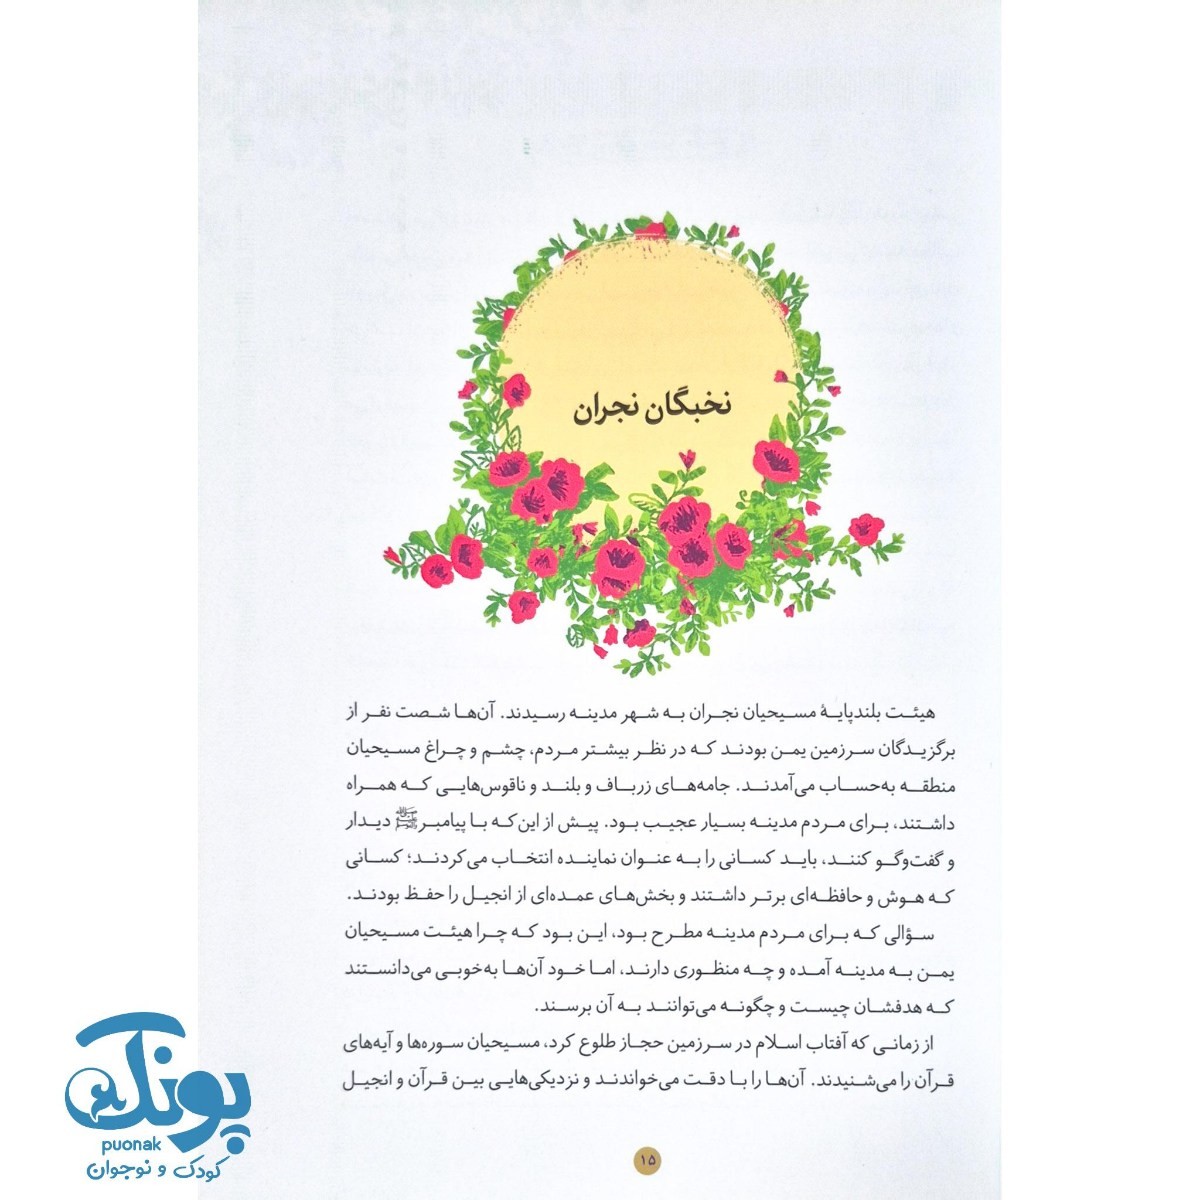 نخبگان نجران
هیئت بلندپایهٔ مسیحیان نجران به شهر مدینه رسیدند. آن‌ها شصت نفر از
برگزیدگان سرزمین یمن بودند که در نظر بیشتر مردم، چشم و چراغ مسیحیان
منطقه به‌حساب می‌آمدند. جامه‌های زرباف و بلند و ناقوس‌هایی که همراه
داشتند، برای مردم مدینه بسیار عجیب بود. پیش از این‌که با پیامبر ﷺ دیدار
و گفت‌وگو کنند، باید کسانی را به عنوان نماینده انتخاب می‌کردند؛ کسانی
که هوش و حافظه‌ای برتر داشتند و بخش‌های عمده‌ای از انجیل را حفظ بودند.
سؤالی که برای مردم مدینه مطرح بود، این بود که چرا هیئت مسیحیان
یمن به مدینه آمده و چه منظوری دارند، اما خود آن‌ها به‌خوبی می‌دانستند
که هدفشان چیست و چگونه می‌توانند به آن برسند.
از زمانی که آفتاب اسلام در سرزمین حجاز طلوع کرد، مسیحیان سوره‌ها و آیه‌های
قرآن را می‌شنیدند. آن‌ها را با دقت می‌خواندند و نزدیکی‌هایی بین قرآن و انجیل
۱۵
پونک
puonak
کودک و نوجوان